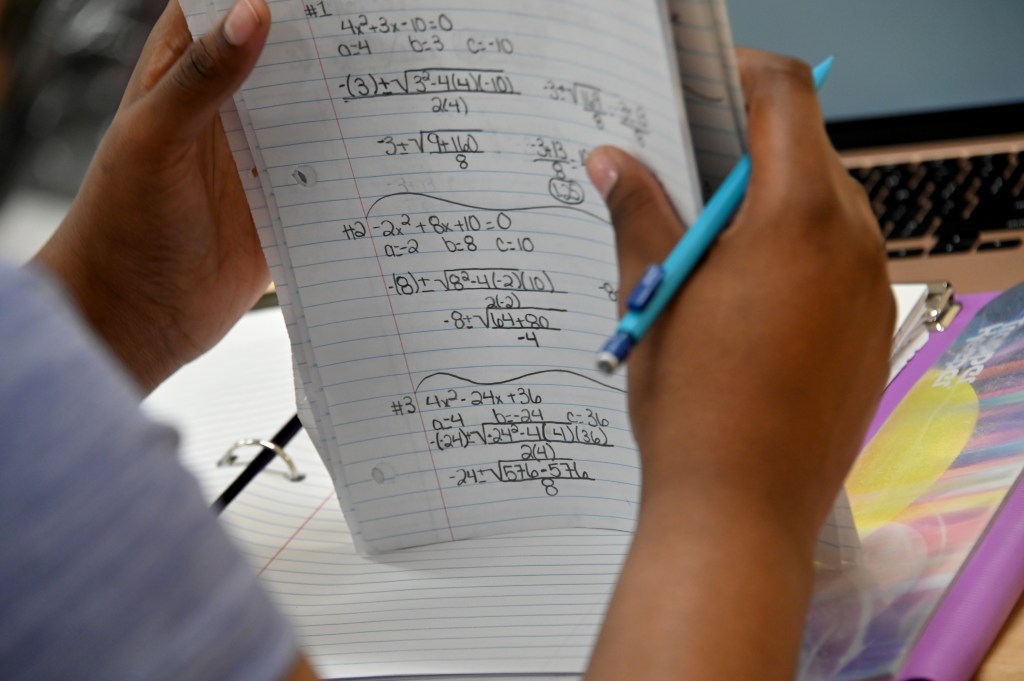 #1
4x²+3x-10=0
a=4 b=3 c=-10
-(3)±√3²-4(4)(-10)
2(4)
-3±√9+160
8
#2 -2x²+8x+10=0
a=-2 b=8 c=10
-(8)±√8²-4(-2)(10)
2(-2)
-8±√64+80
-4
#3 4x²-24x+36
a=4 b=-24 c=36
-(24)±√-24²-4(4)(36)
2(4)
-24±√576-576
8